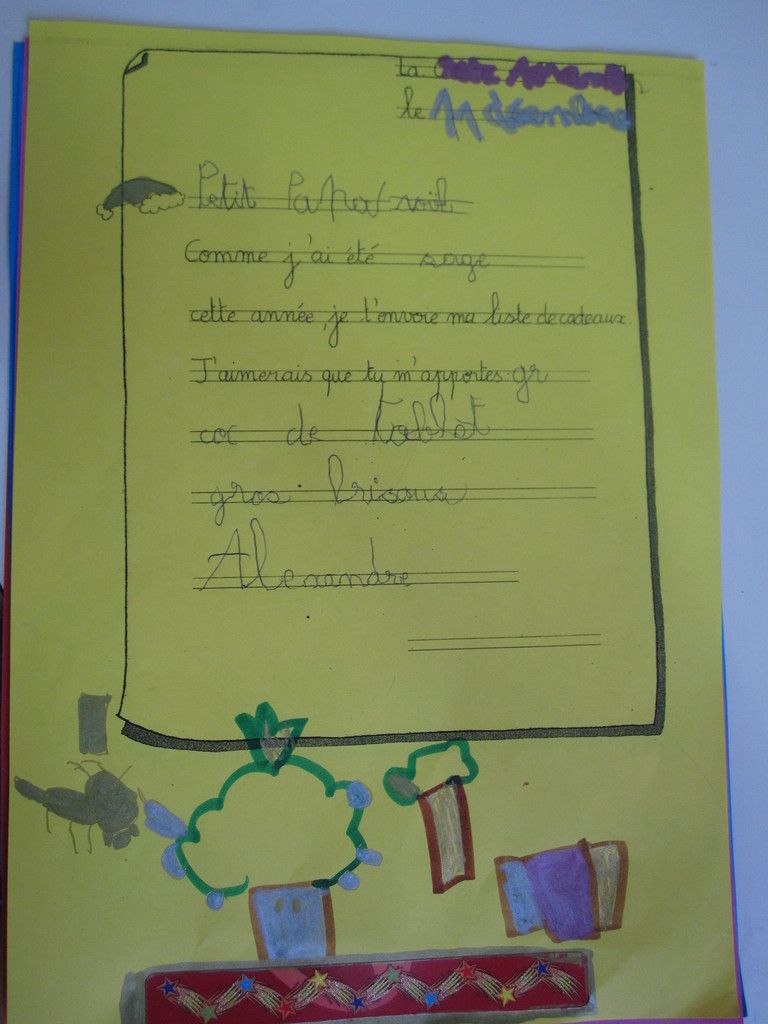 la
le 11 décembre
Petit Papa noil
Comme j'ai été sage
cette année, je t'envoie ma liste de cadeaux.
J'aimerais que tu m'apportes gr
coc de
gros bisous
Alexandre